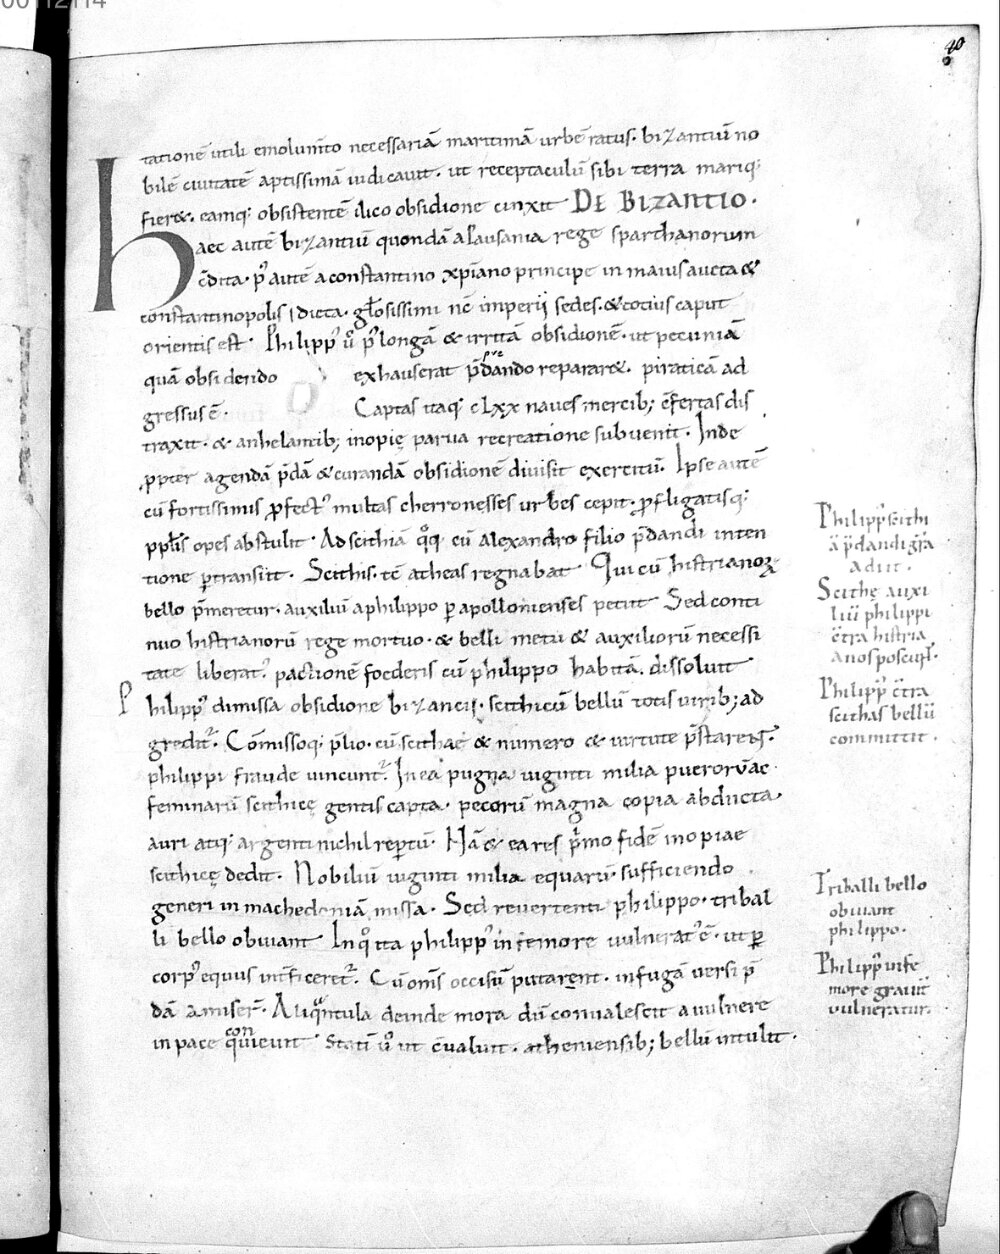 00112114
40
tationē utili emolum̄to necessariā maritimā urbē ratus. bizantiū no
bilē ciuitatē aptissimā iudicauit. ut receptaculū sibi terra mariq;
fier&. eamq; obsistentē ilico obsidione cinxit DE BIZANTIO.
Haec autē bizantiū quondā a Pausania rege sparthanorum
c̄dita. p᷒ autē a constantino xp̄iano principe in maius aucta &
constantinopolis dicta. gl̄osissimi nc̄ imperij sedes. & totius caput
orientis est. Philipp᷒ u̅ p᷒ longā & irritā obsidionē. ut pecuniā
quā obsidendo exhauserat p̄dando reparar&. piraticā ad
gressus ē. Captas itaq; clxx naues mercib; c̄fertas dis
traxit. & anhelantib; inopię parua recreatione subuenit. Inde
ꝓpter agendā p̄dā & curandā obsidionē diuisit exercitū. Ipse autē
cū fortissimis ꝓfect᷒ multas cherronesses urbes cepit. ꝓfligatisq;
ppl̄is opes abstulit. Ad scithiā qͦq; cū alexandro filio p̄dandi inten
tione ꝑtransiit. Scithis. tc̄ atheas regnabat. Qui cū histrianoꝝ
bello p̄meretur. auxiliū a philippo ꝑ apollonienses petiit. Sed conti
nuo histrianorū rege mortuo. & belli metu & auxiliorū necessi
tate liberat᷒. pactionē foederis cū philippo habitā. dissoluit
Philipp᷒ dimissa obsidione bizancij. scithicū bellū totis uirib; ad
gredit᷒. Cōmissoq; p̄lio. cū scithae & numero & uirtute p̄starent.
philippi fraude uincunt᷒. In ea pugna uiginti milia puerorū ac
feminarū scithicę gentis capta. pecorū magna copia abducta.
auri atq; argenti nichil reꝑtū. Hā & ea res p̄mo fidē inopiae
scithicę dedit. Nobiliū uiginti milia equarū. sufficiendo
generi in machedoniā missa. Sed reuertenti philippo. tribal
li bello obuiant. In qͦ ita philipp᷒ in femore uulnerat᷒ ē. ut ꝑ
corp᷒ equus int̄ficeret᷒. Cū om̄s occisū putarent. in fugā uersi p̄
dā amiser̄. Aliqͣntula deinde mora dū conualescit a uulnere
in pace conquieuit. Stati u̅ ut c̄ualuit. atheniensib; bellū intulit.
Philipp᷒ scithi
ā p̄dandi gr̄a
adiit.
Scithę auxi
liū philippi
c̄tra histria
nos poscunt.
Philipp᷒ c̄tra
scithas bellū
committit.
Triballi bello
obuiant
philippo.
Philipp᷒ in fe
more grauit̄
uulneratur.